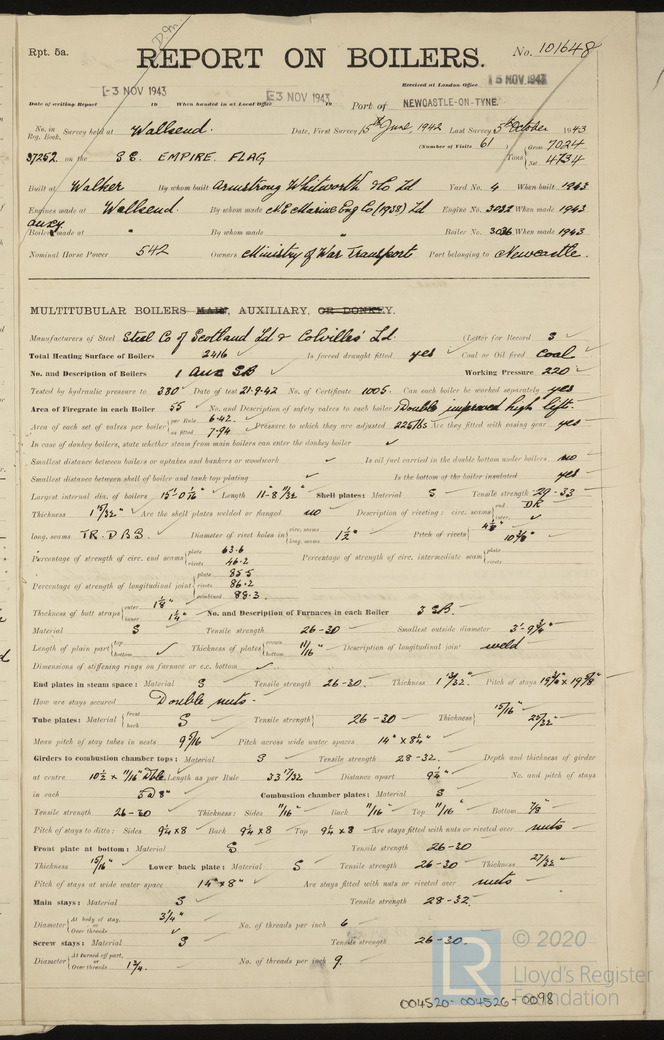 D.M.
Rpt. 5a.
REPORT ON BOILERS.
No. 101648
Received at London Office 15 NOV 1943
-3 NOV 1943 -3 NOV 1943
Date of writing Report 19 When handed in at Local Office 19 Port of NEWCASTLE-ON-TYNE.
No. in Reg. Book. Survey held at Wallsend. Date, First Survey 15th June 1942 Last Survey 5th October 1943
(Number of Visits 61) Tons Gross 7024 Net 4734
37252 on the S.S. EMPIRE FLAG
Built at Walker By whom built Armstrong Whitworth & Co Ld Yard No. 4 When built 1943
Engines made at Wallsend. By whom made N.E. Marine Eng Co (1938) Ld Engine No. 3032 When made 1943
Auxy. Boilers made at " By whom made " Boiler No. 3026 When made 1943
Nominal Horse Power 542 Owners Ministry of War Transport Port belonging to Newcastle.
MULTITUBULAR BOILERS MAIN, AUXILIARY, OR DONKEY.
Manufacturers of Steel Steel Co of Scotland Ld & Colvilles Ld. (Letter for Record S
Total Heating Surface of Boilers 2416 Is forced draught fitted yes Coal or Oil fired Coal
No. and Description of Boilers 1 Aux SB Working Pressure 220
Tested by hydraulic pressure to 380 Date of test 21.9.42 No. of Certificate 1005. Can each boiler be worked separately yes
Area of Firegrate in each Boiler 55 No. and Description of safety valves to each boiler Double improved high lift.
Area of each set of valves per boiler per Rule 6.42. as fitted 7.94 Pressure to which they are adjusted 225 lbs Are they fitted with easing gear yes
In case of donkey boilers, state whether steam from main boilers can enter the donkey boiler ✓
Smallest distance between boilers or uptakes and bunkers or woodwork ✓ Is oil fuel carried in the double bottom under boilers no
Smallest distance between shell of boiler and tank top plating ✓ Is the bottom of the boiler insulated yes
Largest internal dia. of boilers 15'-0 1/16" Length 11'-8 11/32" Shell plates: Material S Tensile strength 29-33
Thickness 1 5/32" Are the shell plates welded or flanged no Description of riveting: circ. seams end DR inter. ✓
long. seams T.R.D.B.S. Diameter of rivet holes in circ. seams long. seams 1 1/2" Pitch of rivets 10 3/8"
Percentage of strength of circ. end seams plate 63.6 rivets 46.2 Percentage of strength of circ. intermediate seam plate rivets
Percentage of strength of longitudinal joint plate 85.5 rivets 86.2 combined 88.3
Thickness of butt straps outer 1 1/8" inner 1 1/4" No. and Description of Furnaces in each Boiler 3 SB.
Material S Tensile strength 26-30 Smallest outside diameter 3'-9 3/4"
Length of plain part top bottom ✓ Thickness of plates crown bottom 11/16" Description of longitudinal joint weld
Dimensions of stiffening rings on furnace or c.c. bottom ✓
End plates in steam space: Material S Tensile strength 26-30. Thickness 1 13/32" Pitch of stays
How are stays secured Double nuts.
Tube plates: Material front back S Tensile strength 26-30 Thickness 15/16" 25/32"
Mean pitch of stay tubes in nests 9 5/16 Pitch across wide water spaces 14" x 8 1/4"
Girders to combustion chamber tops: Material S Tensile strength 28-32. Depth and thickness of girder
at centre 10 1/2 x 11/16" Dble Length as per Rule 33 17/32 Distance apart 9 1/4" No. and pitch of stays
in each 3 @ 8" Combustion chamber plates: Material S
Tensile strength 26-30 Thickness: Sides 11/16" Back 11/16" Top 11/16" Bottom 7/8"
Pitch of stays to ditto: Sides 9 1/4 x 8 Back 9 1/4 x 8 Top 9 1/4 x 8 Are stays fitted with nuts or riveted over nuts
Front plate at bottom: Material S Tensile strength 26-30
Thickness 15/16" Lower back plate: Material S Tensile strength 26-30 Thickness 27/32"
Pitch of stays at wide water space 14" x 8" Are stays fitted with nuts or riveted over nuts
Main stays: Material S Tensile strength 28-32.
Diameter At body of stay, or Over threads 3 1/4" No. of threads per inch 6
Screw stays: Material S Tensile strength 26-30.
Diameter At turned off part, or Over threads 1 3/4. No. of threads per inch 9.
LR © 2020
Lloyd's Register
Foundation
004520-004526-0098